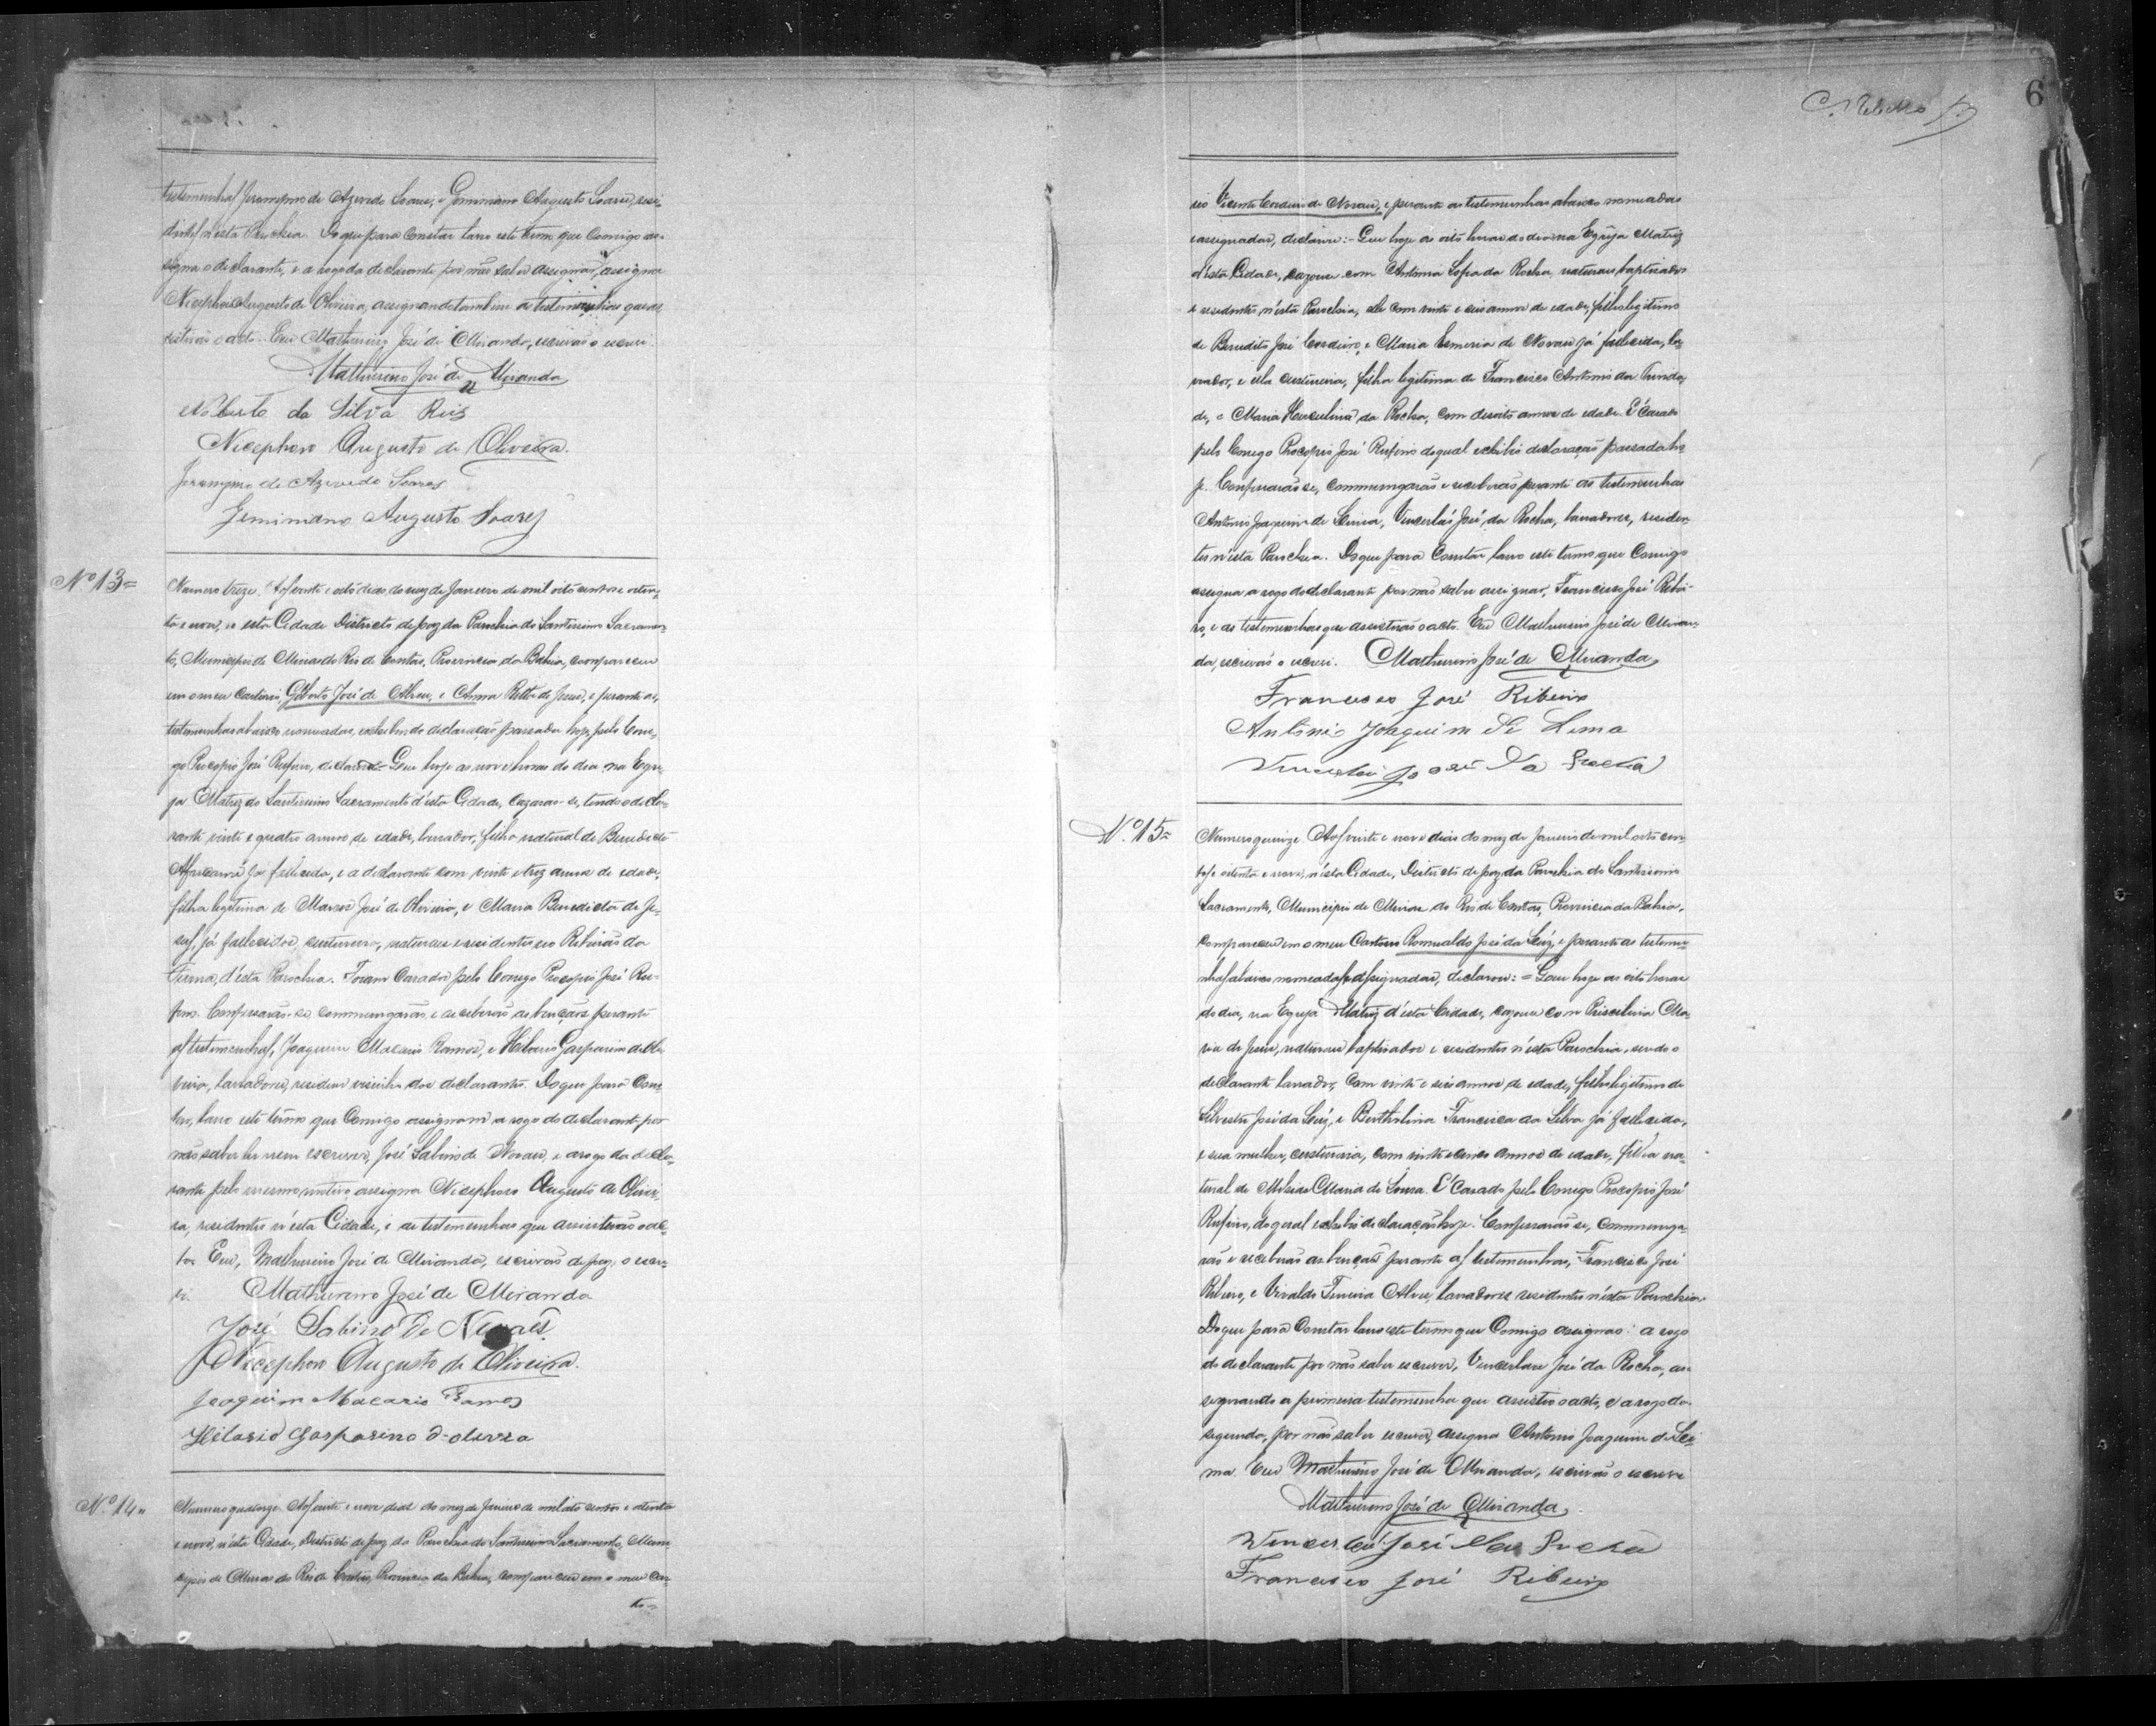 testemunhas Jeronymo de Azevedo Soares, e Geminiano Augusto Soares, resi-
dentes nesta Parochia. Do que para constar lavro este termo que comigo as-
signa o declarante, e a rogo da declarante, por não saber assignar, assigna
Nicephoro Augusto de Oliveira, assignando tambem as testemunhas que as-
sistirão o acto. Eu Mathurino José de Miranda, escrivão o escrevi.
Mathurino José de Miranda
Norberto da Silva Reis
Nicephoro Augusto de Oliveira.
Jeronymo de Azevedo Soares
Geminiano Augusto Soares
Nº 13=
Numero treze. Aos vinte e oito dias do mez de Janeiro de mil oito centos e oiten-
ta e nove, n'esta Cidade Districto de paz da Parochia do Santissimo Sacramen-
to, Municipio de Minas do Rio de Contas, Provincia da Bahia, comparecerão
em o meu Cartorio, José de Abreu, e Anna Ritta de Jesus, e perante as
testemunhas abaixo nomeadas, exhibindo declaração passada hoje pelo Cone-
go Procopio José Rufino, declarão: Que hoje as nove horas do dia na Egre-
ja Matriz do Santissimo Sacramento d'esta Cidade, cazarão-se, tendo o decla-
rante vinte e quatro annos de edade, lavrador, filho natural de Benedicta
Africana já fallecida, e a declarante com vinte e trez annos de edade,
filha legitima de José de Oliveira, e Maria Benedicta de Je-
sus, já fallecidos, custureira, naturaes e residentes no Ribeirão da
d'esta Parochia. Foram Casados pelo Conego Procopio José Ru-
fino. Confessarão-se, commungarão, e receberão as bençãos perante
as testemunhas, Joaquim Macario Ramos, e Hilario Gasparino de Oli-
veira, lavradores, residem visinho dos declarantes. Do que para Cons-
tar, lavro este termo que Comigo assignam a rogo do declarante por
não saber ler nem escrever, José Sabino de Novaes, e a rogo da decla-
rante pelo mesmo motivo assigna Nicephoro Augusto de Olivei-
ra, residentes n'esta Cidade, e as testemunhas que assistirão o ac-
to. Eu, Mathurino José de Miranda, escrivão de paz, o escre-
vi. Mathurino José de Miranda
José Sabino de Novaes
Nicephoro Augusto de Oliveira.
Joaquim Macario Ramos
Hilario Gasparino d-olivra
Nº 14=
Numero quatorze. Aos vinte e nove dias do mez de Janeiro de mil oito centos e oitenta
e nove, n'esta Cidade, Districto de paz da Parochia do Santissimo Sacramento, Muni-
cipio de Minas do Rio de Contas, Provincia da Bahia, compareceu em o meu Car-
to-
6
rio Vicente Cordeiro de Novaes, e perante as testemunhas abaixo nomeadas
e assignadas, declarou:- Que hoje as oito horas do dia na Egreja Matriz
d'esta Cidade, cazou-se com Antonia da Rocha, naturaes baptisados
e residentes n'esta Parochia, elle com vinte e seis annos de edade, filho legitimo
de Benedito José Cordeiro, e Maria de Novaes já fallecida, la-
vrador, e ella custureira, filha legitima de Francisco Antonio da Trinda-
de, e Maria Herculina da Rocha, com desoito annos de edade. É Casado
pelo Conego Procopio José Rufino do qual exhibio declaração passada ho-
je. Confessarão-se, commungarão e receberão perante as testemunhas
Antonio Joaquim de Lima, Venceslau José da Rocha, lavradores, residen-
tes n'esta Parochia. Do que para Constar lavro este termo que Comigo
assigna a rogo do declarante por não saber assignar, Francisco José Ribei-
ro, e as testemunhas que assistirão o acto. Eu Mathurino José de Miran-
da, escrivão o escrevi. Mathurino José de Miranda
Francisco José Ribeiro
Antônio Joaquim de Lima
José da Rocha
Nº 15=
Numero quinze. Aos vinte e nove dias do mez de Janeiro de mil oito cen-
tos e oitenta e nove, n'esta Cidade, Districto de paz da Parochia do Santissimo
Sacramento, Municipio de Minas do Rio de Contas, Provincia da Bahia,
compareceu em o meu Cartorio Romualdo José da, e perante as testemu-
nhas abaixo nomeadas e assignadas, declarou: = Que hoje as oito horas
do dia, na Egreja Matriz d'esta Cidade, cazou-se com Priscilina Ma-
ria de Jesus, naturaes baptisados e residentes n'esta Parochia, sendo o
declarante lavrador, com vinte e seis annos de edade, filho legitimo de
Silvestre José da, e Bertholina Francisca da Silva já fallecida,
e sua mulher, custureira, com vinte e cinco annos de edade, filha na-
tural de Maria de Souza. É Casado pelo Conego Procopio José
Rufino, do qual exhibio declaração hoje. Confessarão-se, communga-
rão e receberão as bençãos perante as testemunhas, Francisco José
Ribeiro, e Vivaldo Alves, lavradores residentes n'esta Parochia.
Do que para Constar lavro este termo que Comigo assignão: a rogo
do declarante por não saber escrever, Venceslau José da Rocha, as-
signando a primeira testemunha que assistio o acto, e a rogo da
segunda, por não saber escrever, assigna Antonio Joaquim de Li-
ma. Eu Mathurino José de Miranda, escrivão o escrevi
Mathurino José de Miranda
José da Rocha
Francisco José Ribeiro